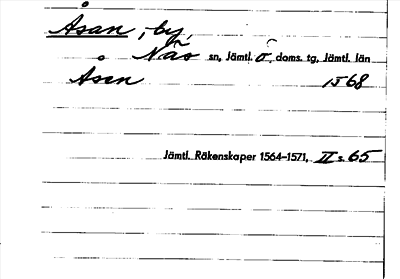 Åsan, by,
Näs sn, Jämtl. Ö. doms. tg, Jämtl. län
Åsen 1568
Jämtl. Räkenskaper 1564-1571, II s. 65